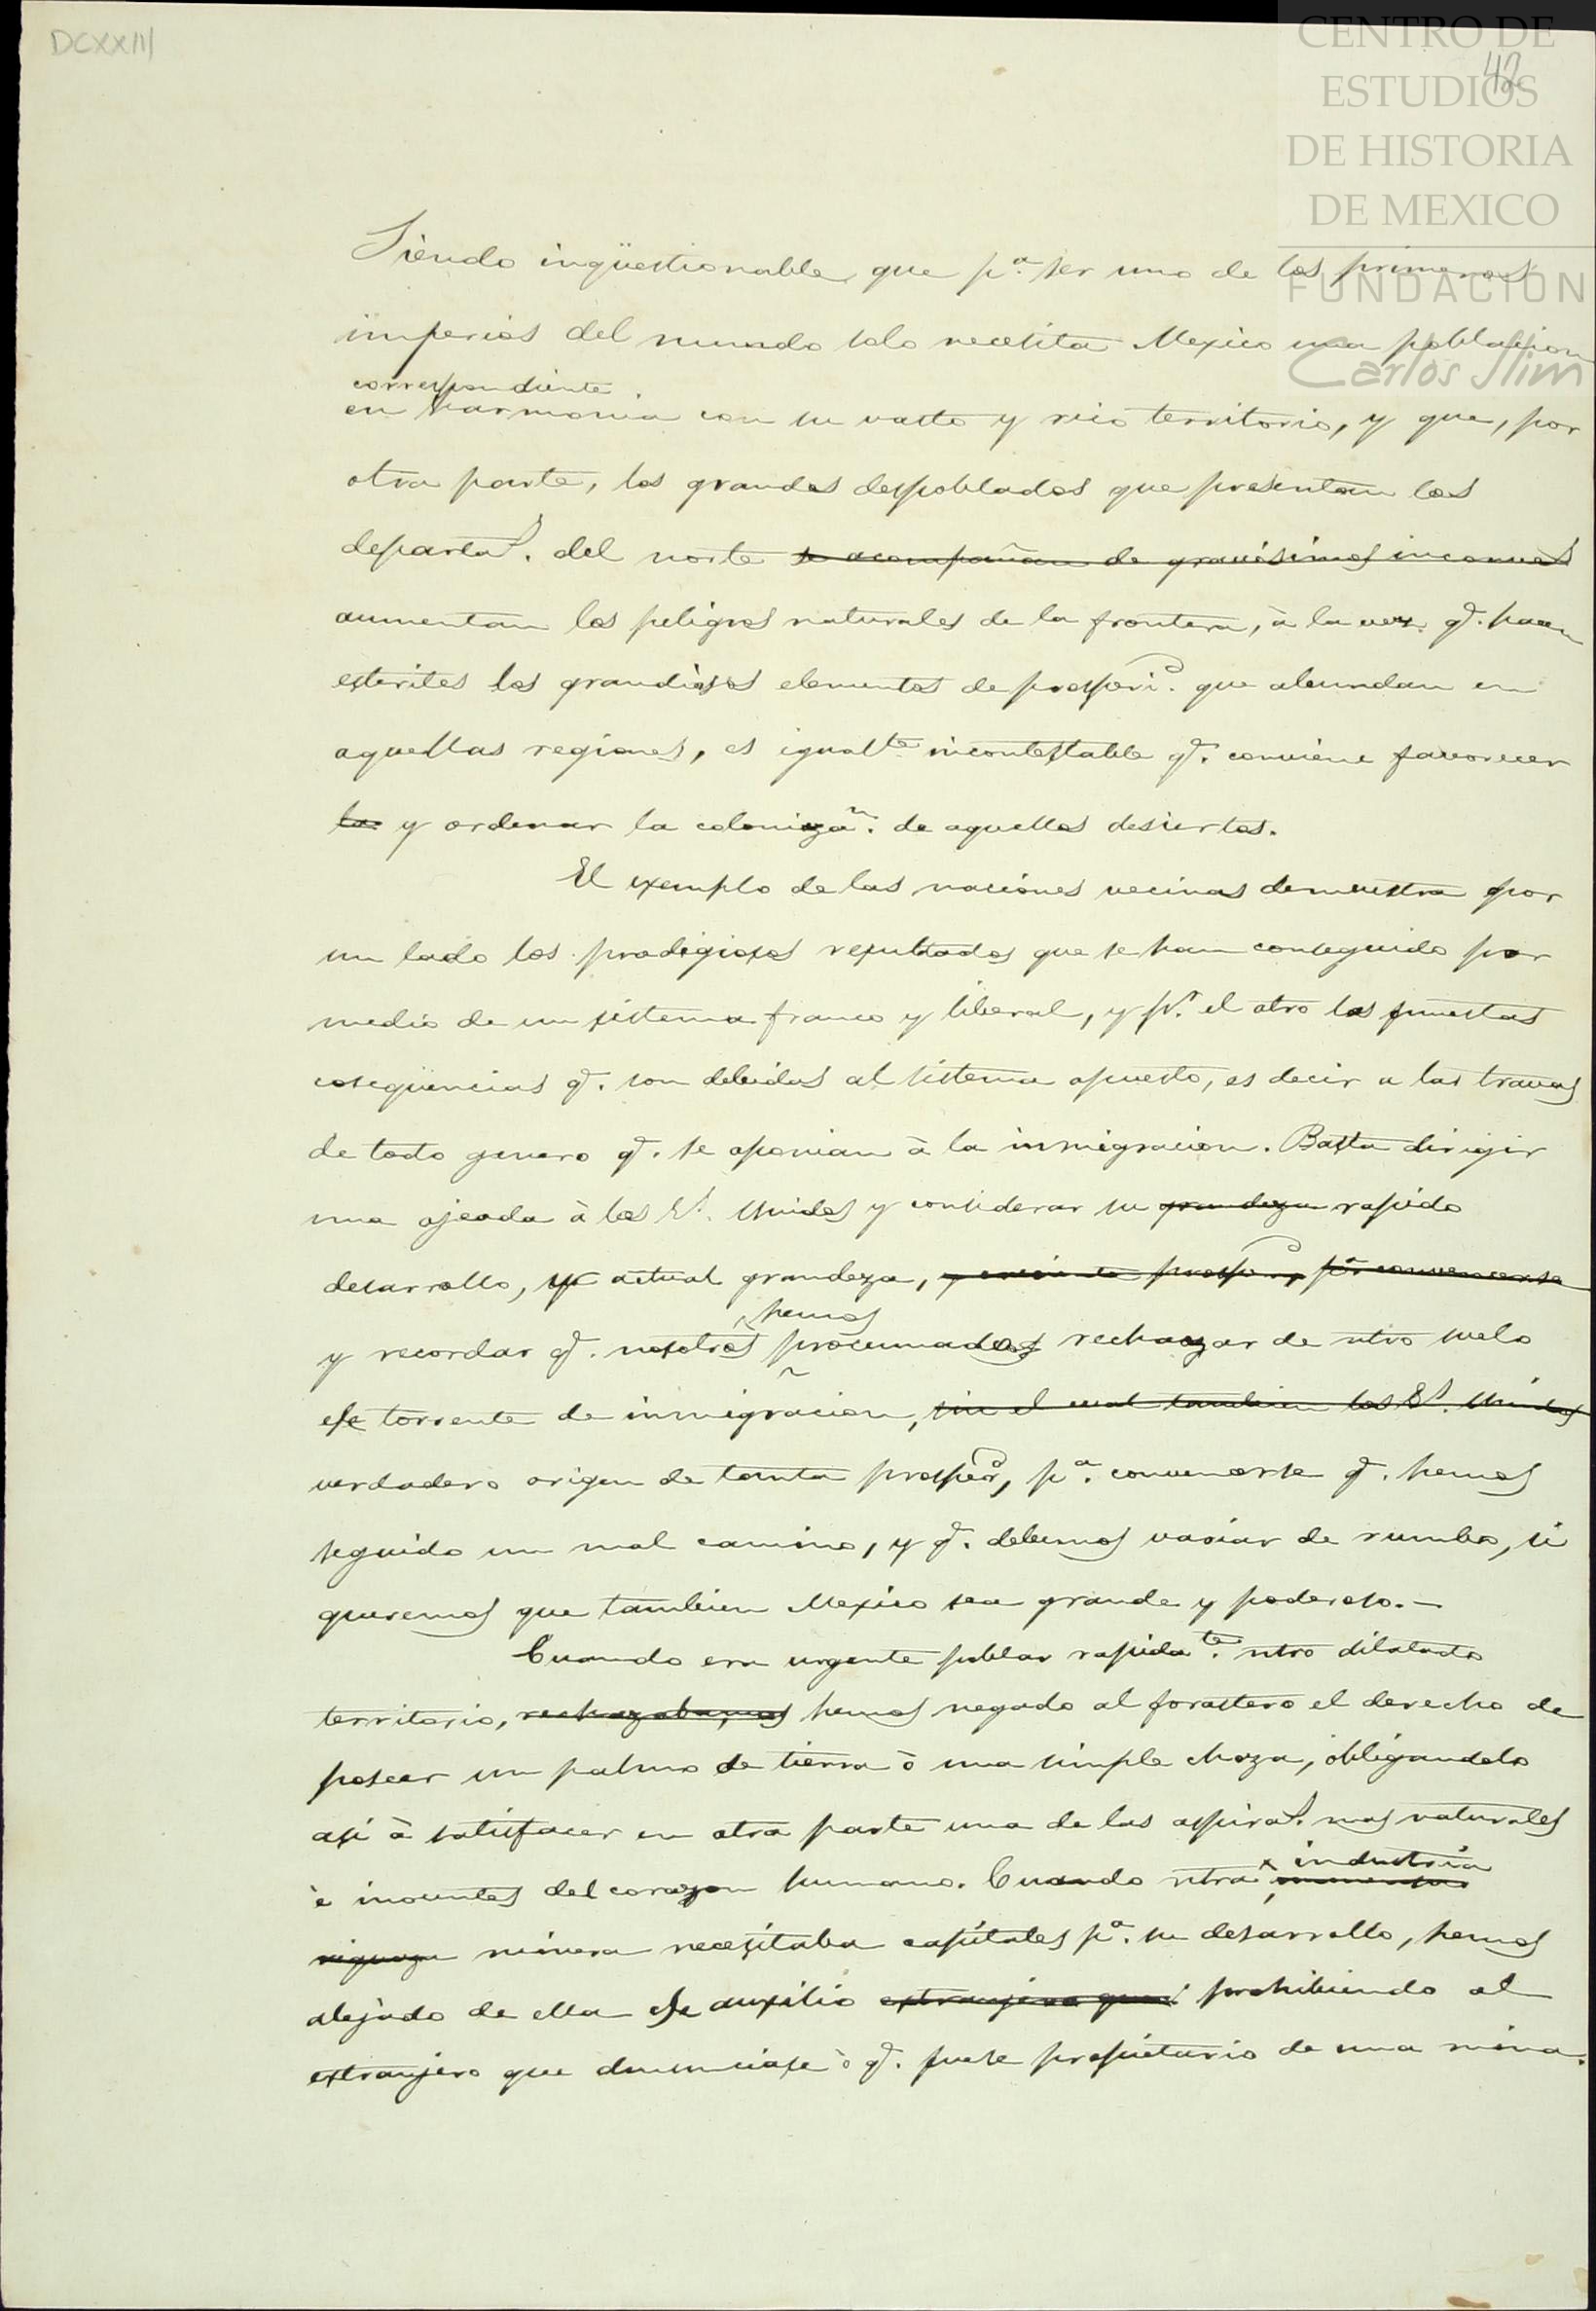 DCXXIII
42
CENTRO DE
ESTUDIOS
DE HISTORIA
DE MEXICO
FUNDACION
Carlos Slim
Siendo inqüestionable, que pª. ser uno de los primeros
imperios del mundo solo necesita Mexico una poblacion
correspondiente
en harmonia con su vasto y rico territorio, y que, por
otra parte, los grandes despoblados que presentan los
departaˢ. del norte se acompañan de gravisimos inconvˢ
aumentan los peligros naturales de la frontera, à la vez qᵉ. hacen
esteriles los grandiosos elementos de prosperiᵈ. que abundan en
aquellas regiones, es igualᵗᵉ incontestable qᵉ. conviene favorecer
la y ordenar la colonizaⁿ. de aquellos desiertos.
El exemplo de las naciones vecinas demuestra por
un lado los prodigiosos resultados que se han conseguido por
medio de un sistema franco y liberal, y pʳ. el otro las funestas
coseqüencias qᵉ. son debidas al sistema opuesto, es decir a las travas
de todo genero qᵉ. se oponian à la inmigracion. Basta dirigir
una ojeada à los Eˢ. Unidos y considerar su grandeza rapido
desarrollo, su actual grandeza, y creciente prospᵈ, pª convencerse
hemos
y recordar qᵉ. nosotros procurnados rechazar de ntro suelo
ese torrente de inmigracion, sin el cual tambien los Eˢ. Unidos
verdadero origen de tanta prosperᵈ, pª. convencerse qᵉ. hemos
seguido un mal camino, y qᵉ. debemos variar de rumbo, si
queremos que tambien Mexico sea grande y poderoso.—
Cuando era urgente poblar rapidaᵗᵉ. ntro dilatado
territorio, rechazabamos hemos negado al forastero el derecho de
poseer un palmo de tierra ò una simple choza, obligandolo
asi à satisfacer en otra parte una de las aspiraˢ. mas naturales
è inocentes del corazon humano. Cuando ntra
industria
riqueza minera necesitaba capitales pª. su desarrollo, hemos
alejado de ella ese auxilio extranjero que prohibiendo al
extranjero que denunciase ò qᵉ. fuese propietario de una mina.